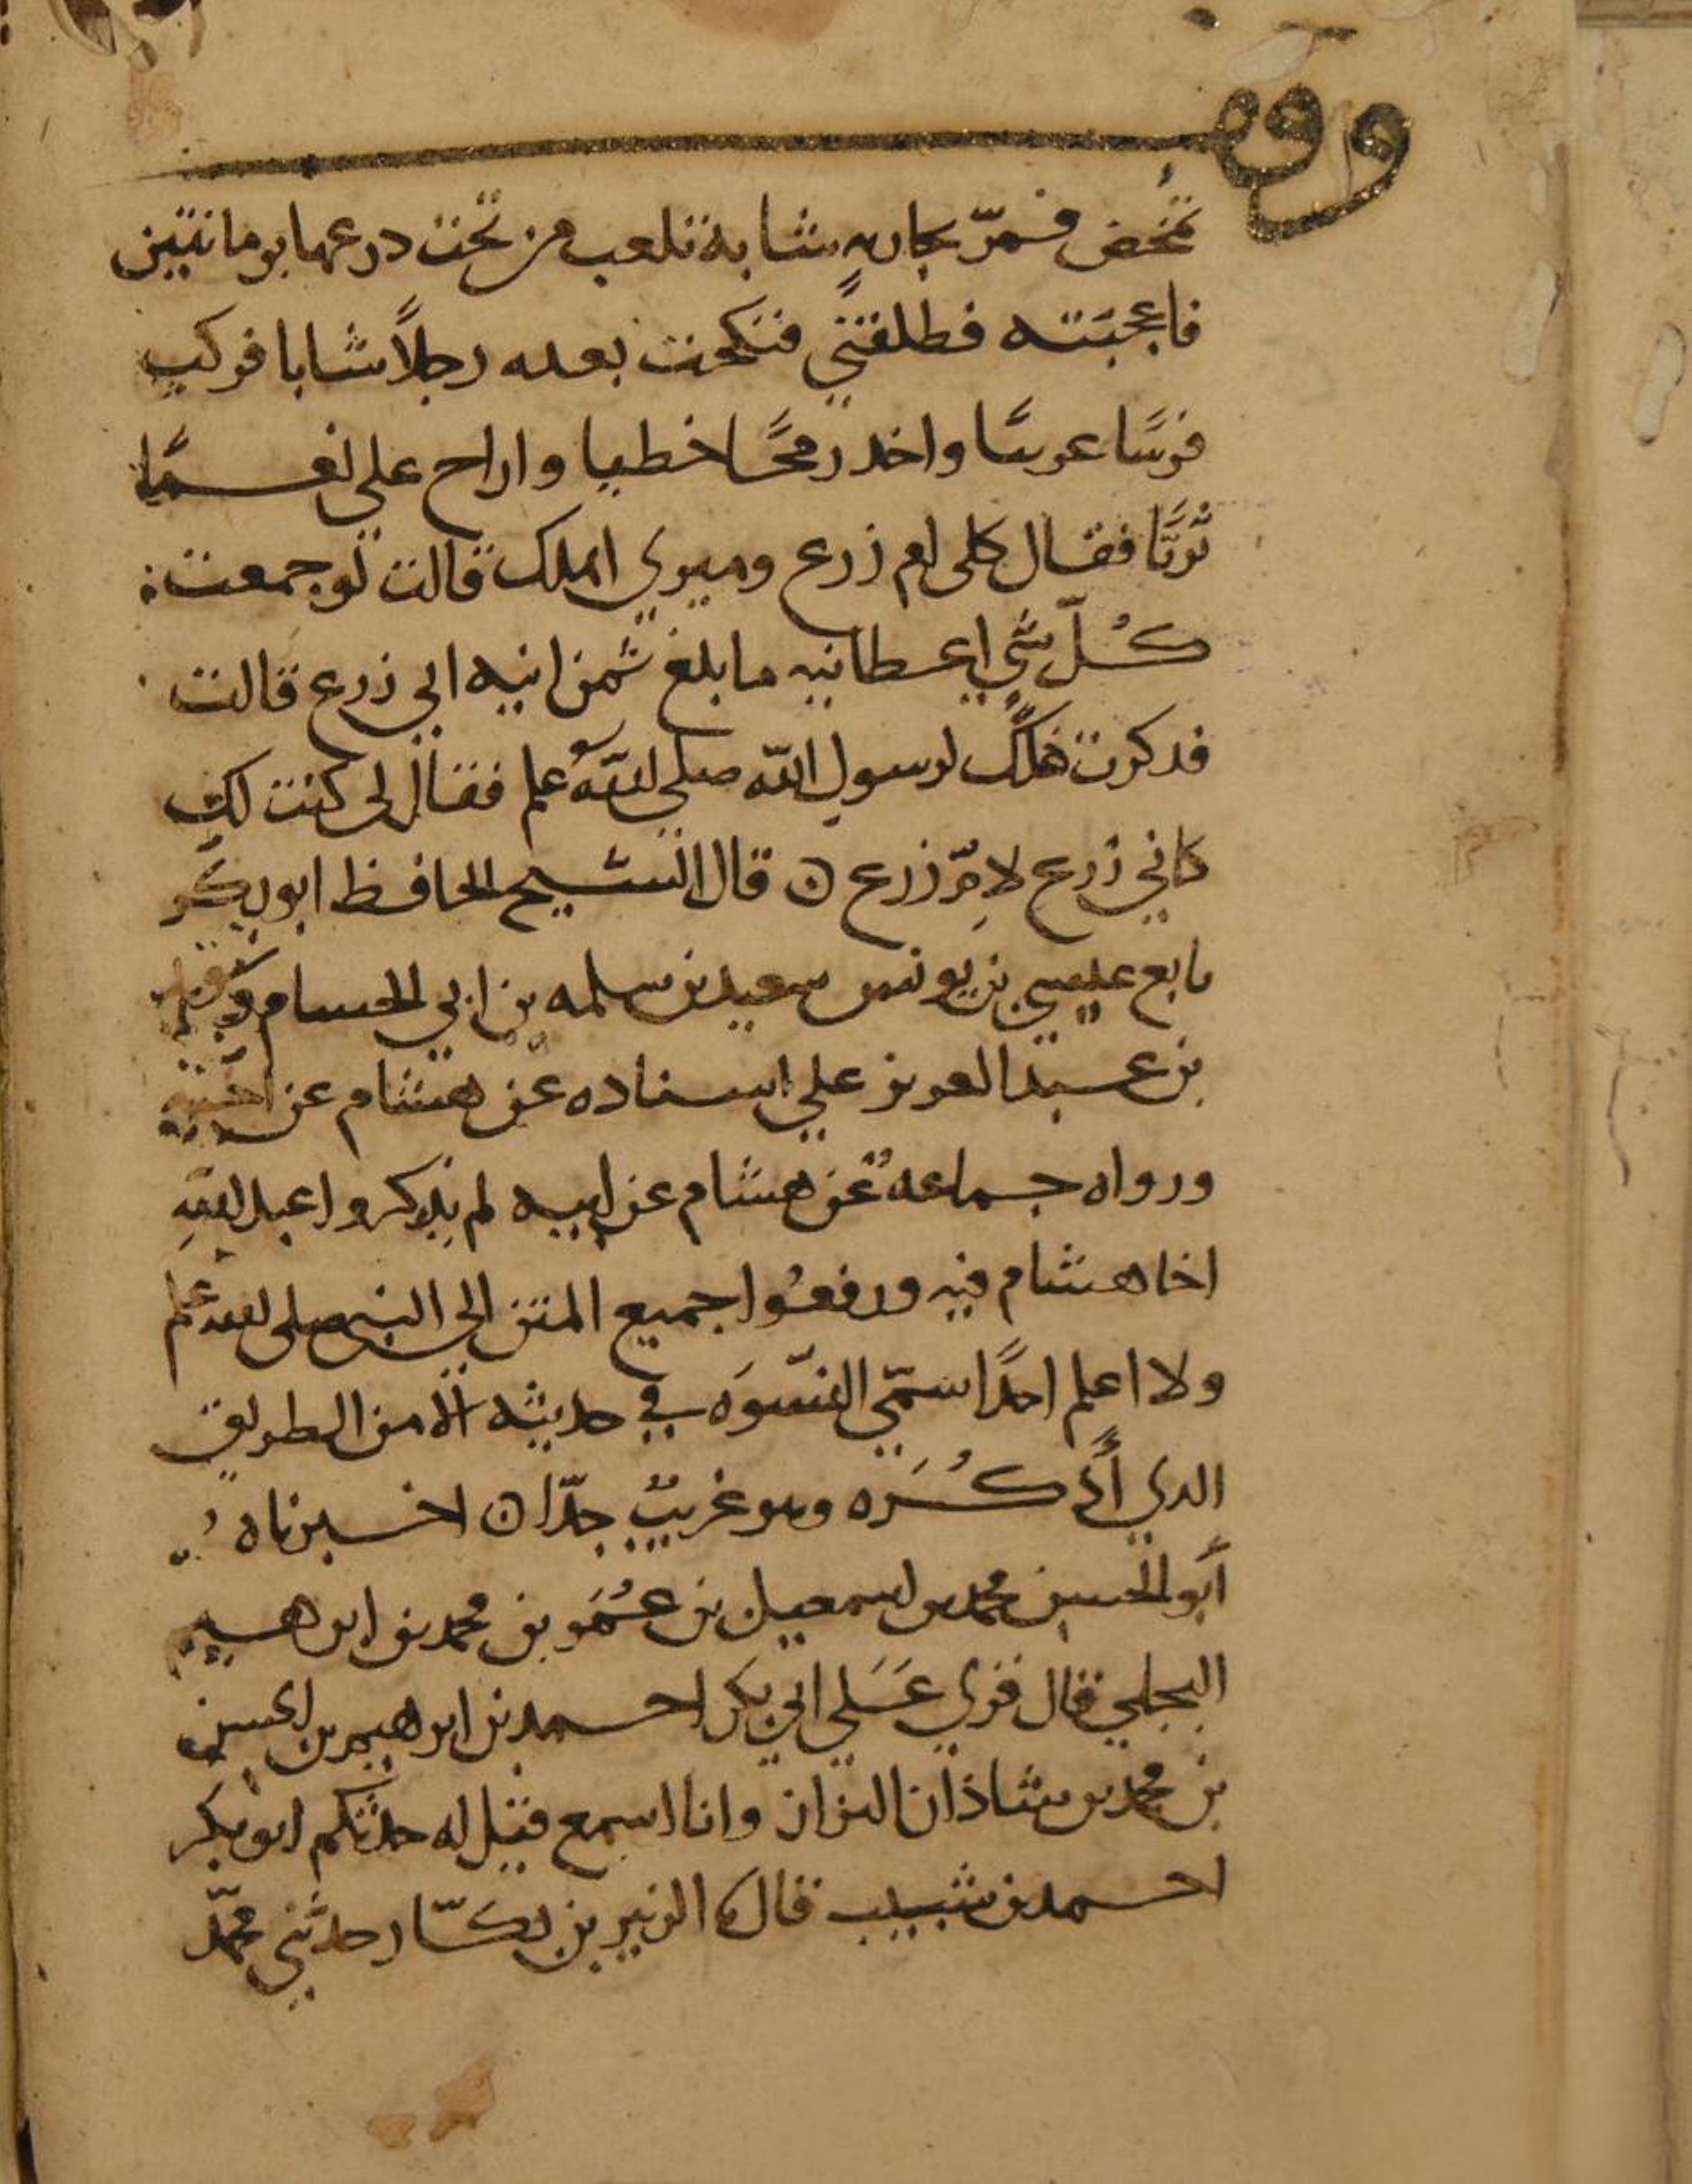 وقف
تمخض فمرّ بجاريه شابة تلعب من تحت درعها برمانتين
فاعجبَته فطلقني فنكحت بعده رجلاً شابا فركب
فرسًا عربيًا واخد رمحًا خطيا واراح علي نعمًا
ثريًّا فقال كلى ام زرع وميري اهلك قالت لو جمعت
كُلّ شيٍ اعطانيه ما بلغ ثمن انيه ابي زرع قالت
فدكرت ذلك لرسول الله صلى الله علم فقال لى كنت لكِ
كابي زرع لامِّ زرع ن قال الشيخ الحافظ ابو بكر
تابع عيسي بن يونس سعيد بن سلمه بن ابي الحسام
بن عبد العزيز علي اسناده عن هشام عن اخيه
ورواه جماعهٌ عن هشام عن ابيه لم يذكروا عبد اللهِ
اخا هشام فيه ورفعُوا جميع المتن الي النبي صلى الله علم
ولا اعلم احدًا سمّي النسّوَه في حديثه الا من الطريق
الدي أذكُرَه وهو غريبٌ جدّا ن اخبرناه
أبو الحسين محمد بن اسمعيل بن عُمَر بن محمد بن ابرهيم
البجلي قال قري عَلي ابي بكر احمد بن ابرهيم بن الحسن
بن محمد بن شاذان البزاز وانا اسمع فقيل له حدثكم ابو بكر
احمد بن شبيب قال الزبير بن بكّار حدثني محمّد